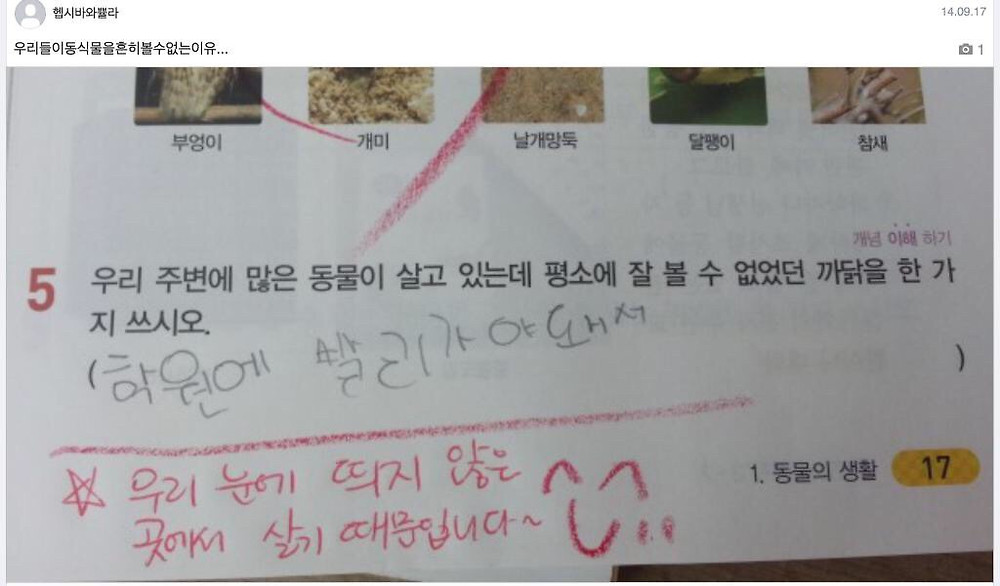 헵시바와쀨라
14.09.17
우리들이동식물을흔히볼수없는이유...
1
부엉이 개미 날개망둑 달팽이 참새
개념 이해 하기
5 우리 주변에 많은 동물이 살고 있는데 평소에 잘 볼 수 없었던 까닭을 한 가
지 쓰시오.
(학원에 빨리가야되서 )
우리 눈에 띄지 않은
곳에서 살기 때문입니다~
1. 동물의 생활 17